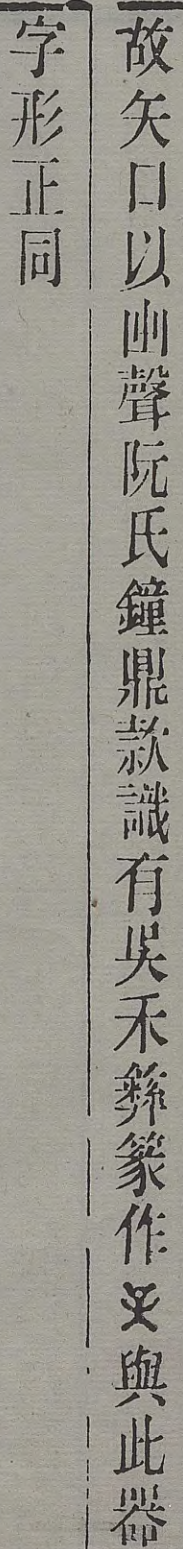 故矢口以出聲阮氏鐘鼎款識有吳禾彝篆作與此器
字形正同